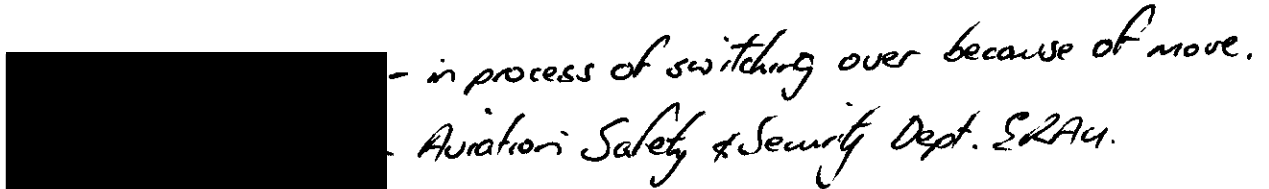 - in process of switching over because of move.
- Aviation Safety & Security Dept. ERAU.